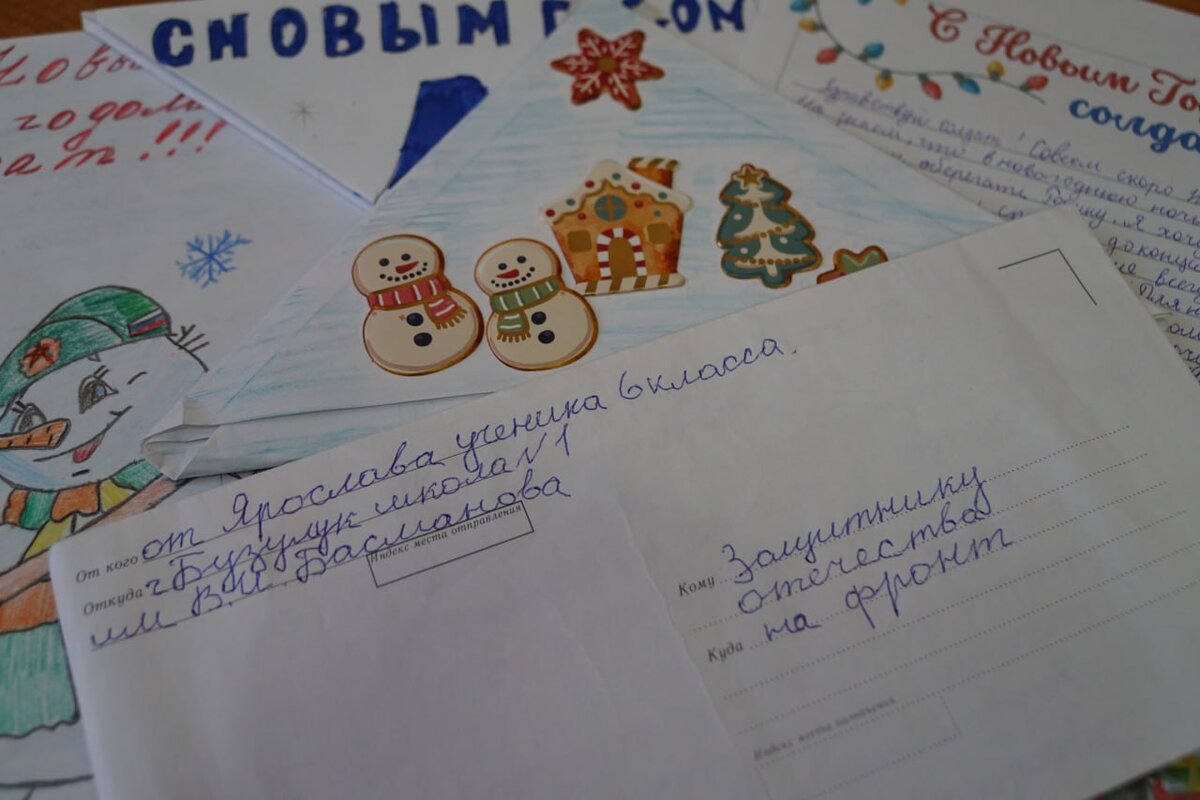 Новым
годом
!!!
С НОВЫМ Г
С Новым Го
солда
Здравствуй солдат! Совсем скоро
что в новогоднюю ночь
оберегать я хоч
от Ярослава ученика 6 класса.
От кого
г Бузулук школа №1
Откуда
им В.И. Басманова
Индекс места отправления
Кому Защитнику
отечества
Куда на фронт
Индекс места назначения